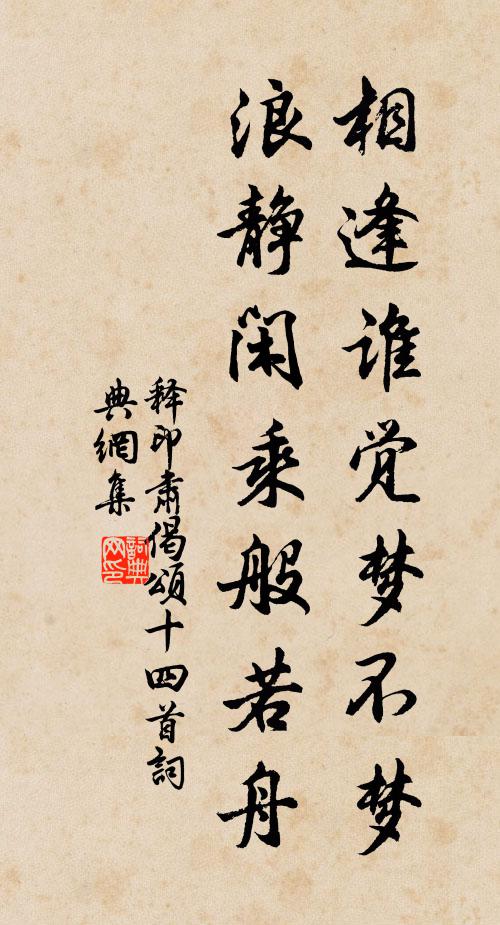 相逢谁觉梦不梦
浪静闲乘般若舟
释印肃偈頌十四首詞
典網集
詞典网印